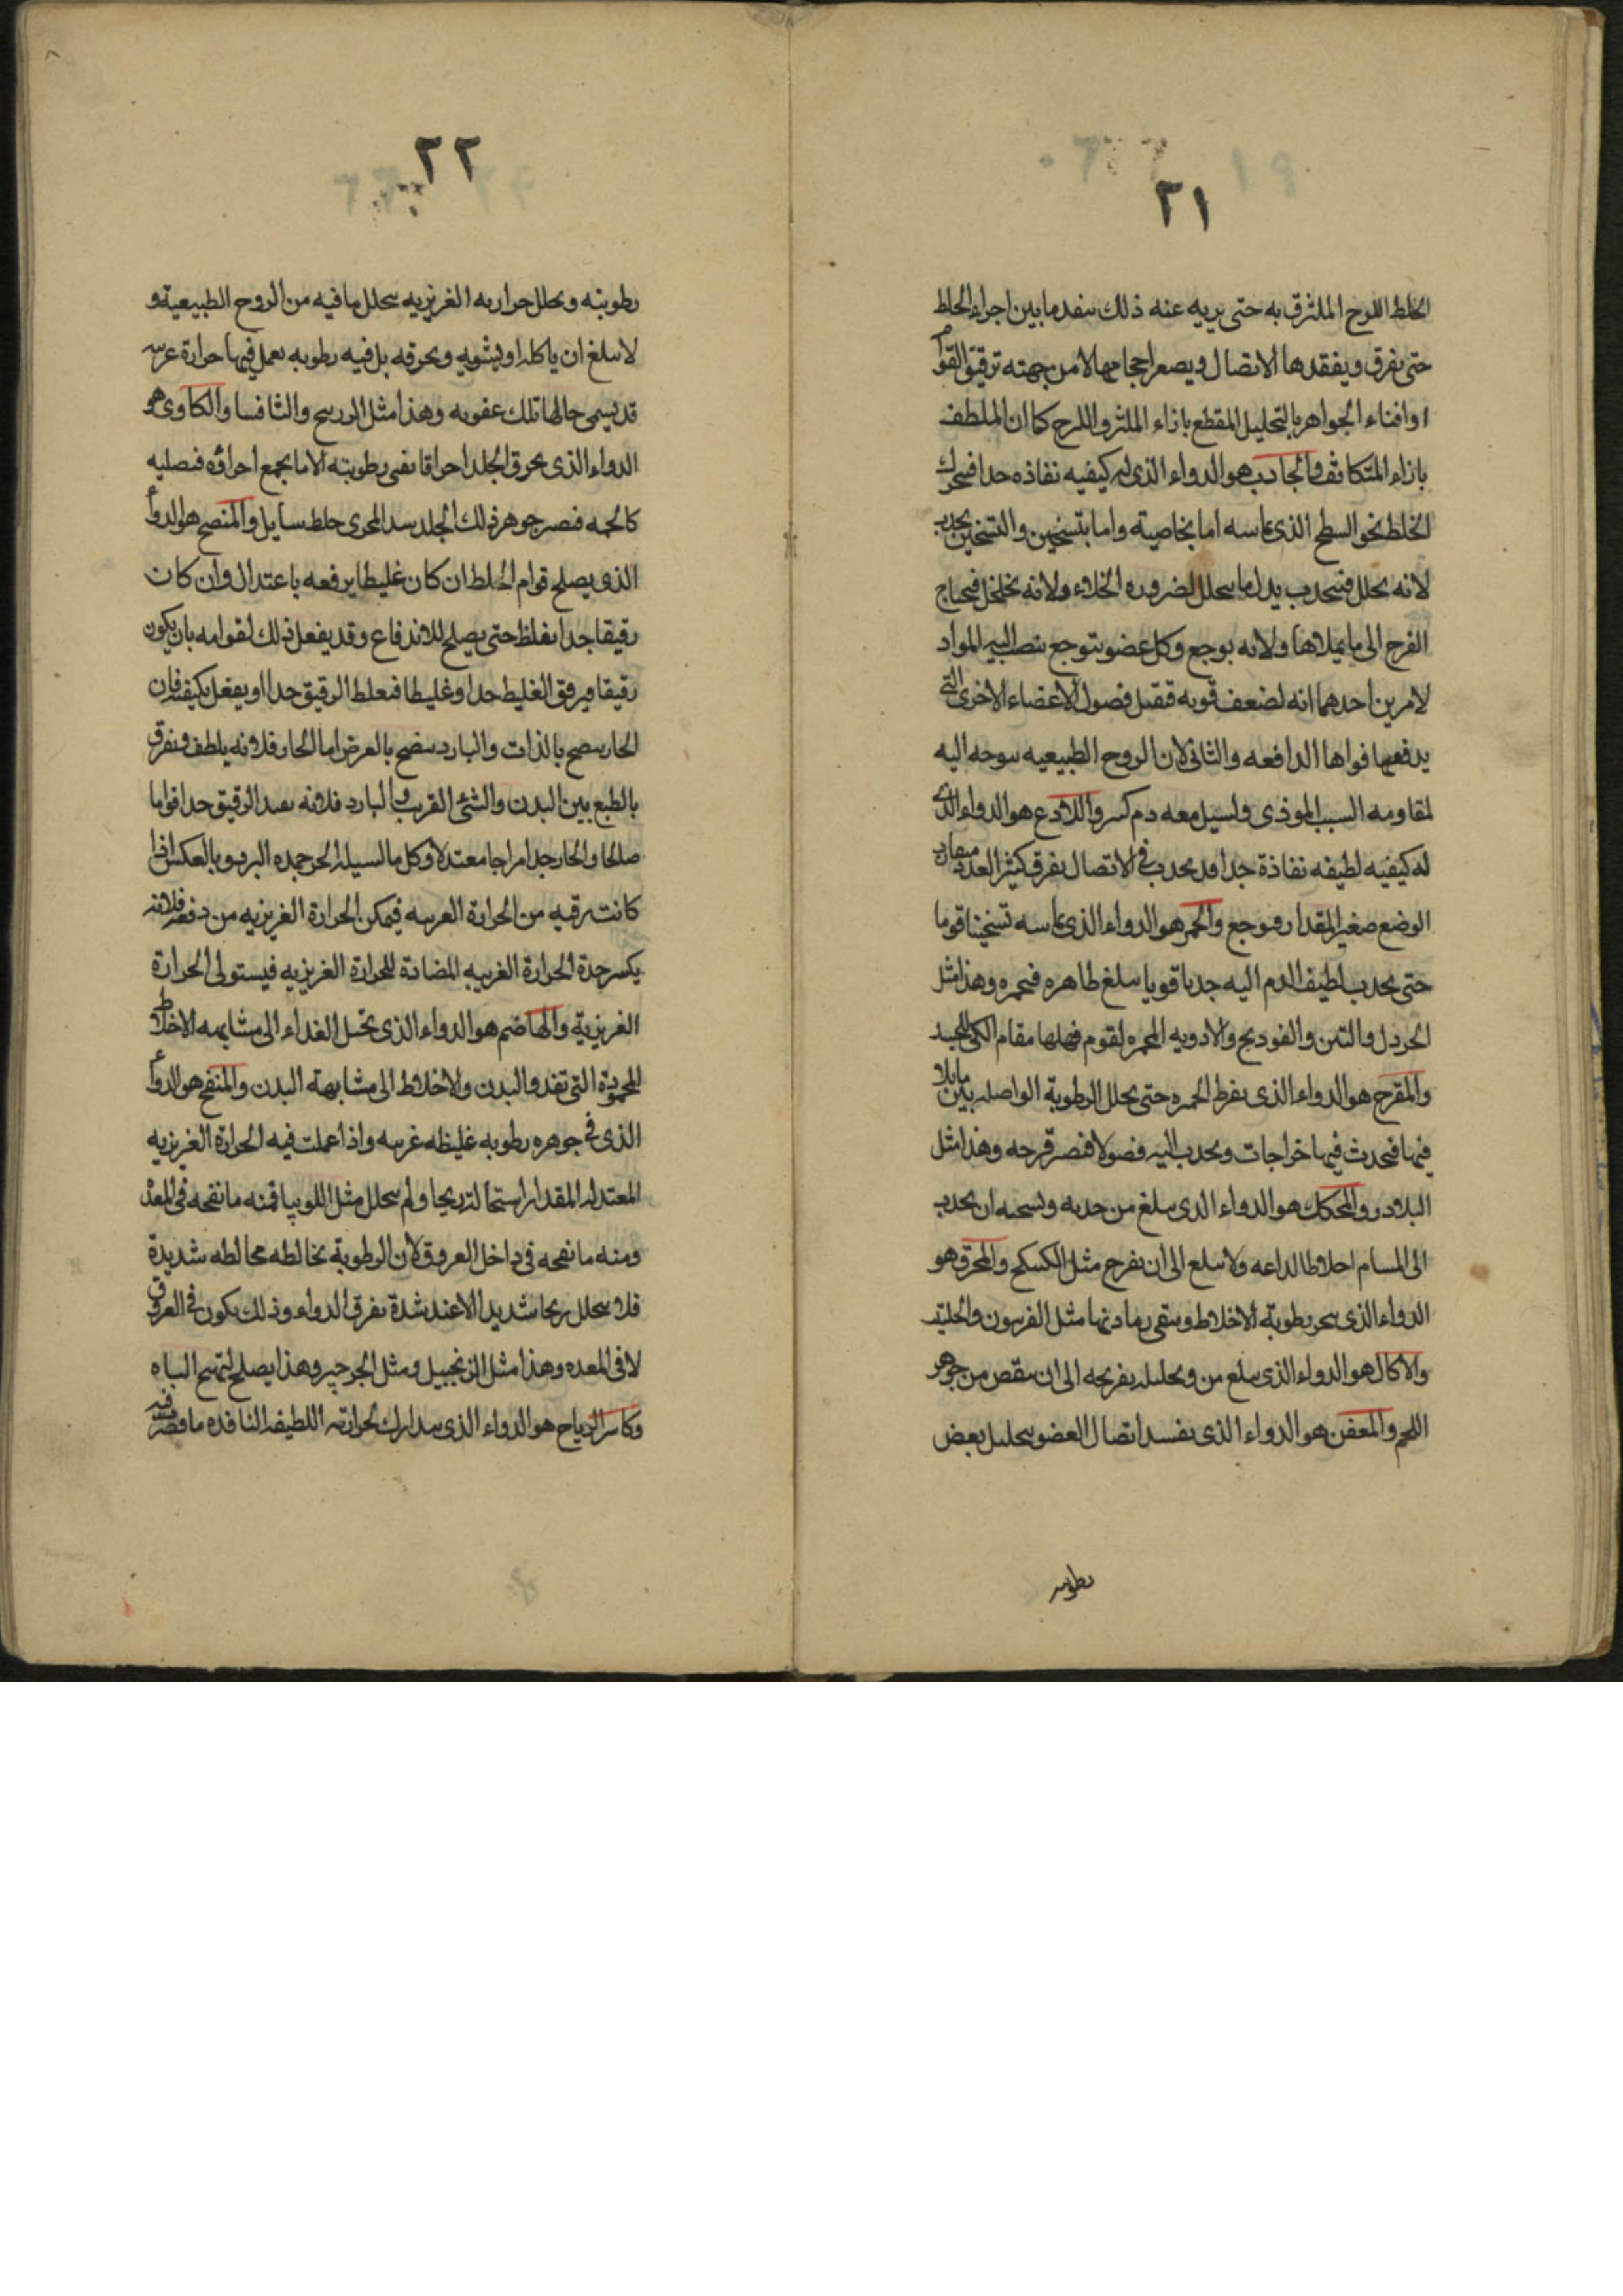 ٢١
الخلط اللزج الملتزق به حتى يريه عنه ذلك سفد مابين اجراء الخلط
حتى يفرق ويفقدها الاتصال ويصعر احجامها لا من جهته ترقيق القوام
او افناء الجواهر بالتحليل المقطع بازاء الملتزق واللزج كما ان الملطف
بازاء المتكاثف والجاذب هو الدواء الذى له كيفيه نفاذه جدا فيحرك
الخلط نحو السطح الذى يماسه اما بخاصيته واما بتسخين والتسخين يجذب
لانه يحلل فينجذب بدل ما يتحلل لضروره الخلاء ولانه يخلخل فيحتاج
الفرج الى ما يملاها ولانه يوجع وكل عضو يتوجع ينصب اليه المواد
لامرين احدهما انه لضعف قوته فقبل فضول الاعضاء الاخرى التى
يدفعها قواها الدافعه والثانى لان الروح الطبيعيه يتوجه اليه
لمقاومه السبب الموذى ولسيل معه دم كثير واللاذع هو الدواء الذى
له كيفيه لطيفه نفاذة جدا قد يحدث فى الاتصال تفرق كثير العدد متقارب
الوضع صغير المقدار فيوجع والمحمر هو الدواء الذى يماسه تسخينا قويا
حتى يجذب لطيف الدم اليه جذبا قويا يبلغ ظاهره فيحمره وهذا مثل
الخردل والتين والفودنج والادويه المحمره لقوم فعلها مقام الكى للجيد
والمقرح هو الدواء الذى يفرط الحمره حتى يحلل الرطوبة الواصله بين مابلا
فيها فيحدث فيها خراجات ويجذب اليه فضولا فيصير قرحه وهذا مثل
البلادر والمحكك هو الدواء الذى يبلغ من حدبه وتسخينه ان يجذب
الى المسام اخلاطا لذاعه ولا يبلغ الى ان يقرح مثل الكبيكج والمحرق هو
الدواء الذى يبخر رطوبة الاخلاط ويبقى رمادتها مثل الفربيون والحلتيت
والاكال هو الدواء الذى يبلغ من وتحليله تقريحه الى ان ينقص من جوهر
اللحم والمعفن هو الدواء الذى يفسد اتصال العضو بتحليل بعض
رطوبته
٢٢
رطوبته ويحلل حرارته الغريزيه بتحلل ما فيه من الروح الطبيعية و
لا يبلغ ان ياكله او يشويه ويحرقه بل فيه رطوبه يعمل فيها حرارة غريبه
قد يسمى حالها تلك عفونه وهذا مثل الزرنيخ والثافسيا والكاوى هو
الدواء الذى يحرق الجلد احراقا يفنى رطوبته الا ما يجمع اجزاؤه فيصليه
كالحمه فيصير جوهر ذلك الجلد سد المجرى خلط سايل والمنضج هو الدوأ
الذى يصلح قوام الخلط ان كان غليظا يرفعه باعتدال وان كان
رقيقا جدا يغلظ حتى يصلح للاندفاع وقد يفعل ذلك لقوامه بان يكون
رقيقا فيرقق الغليظ جدا وغليظا فيغلظ الرقيق جدا او يفعل بكيفيته فان
الحار ينضج بالذات والبارد ينضج بالعرض اما الحار فلانه يلطف ويفرق
بالطبع بين البدن والشئ القريب والبارد فلانه يفيد الرقيق جدا قواما
صالحا والحار جدا مراجا معتدلا وكل ما اسيله الحر جمده البرد وبالعكس اذا
كانت رقيه من الحرارة الغريبه فيمكن الحرارة الغريزيه من دفعه فلانه
يكسر حدة الحرارة الغريبه المضادة للحرارة الغريزيه فيستولى الحرارة
الغريزية والهاضم هو الدواء الذى يحيل الغذاء الى مشابهه الاخلاط
المحمودة التى تغذو البدن والاخلاط الى مشابهة البدن والمنفخ هو الدوأ
الذى فى جوهره رطوبه غليظه غريبه واذا عملت فيه الحرارة الغريزيه
المعتدله المقدار استحالت ريحا ولم يتحلل مثل اللوبيا فمنه ما نفخه فى المعدة
ومنه ما نفخه فى داخل العروق لان الرطوبة تخالطه مخالطه شديدة
فلا يتحلل ريحا شديدا الا عند شدة تفرق الدواء وذلك يكون فى العروق
لا فى المعده وهذا مثل الزنجبيل ومثل الجرجير وهذا يصلح لتهييج الباه
وكاسر الرياح هو الدواء الذى يتدارك بحرارته اللطيفه النافذه ما قصر فيه